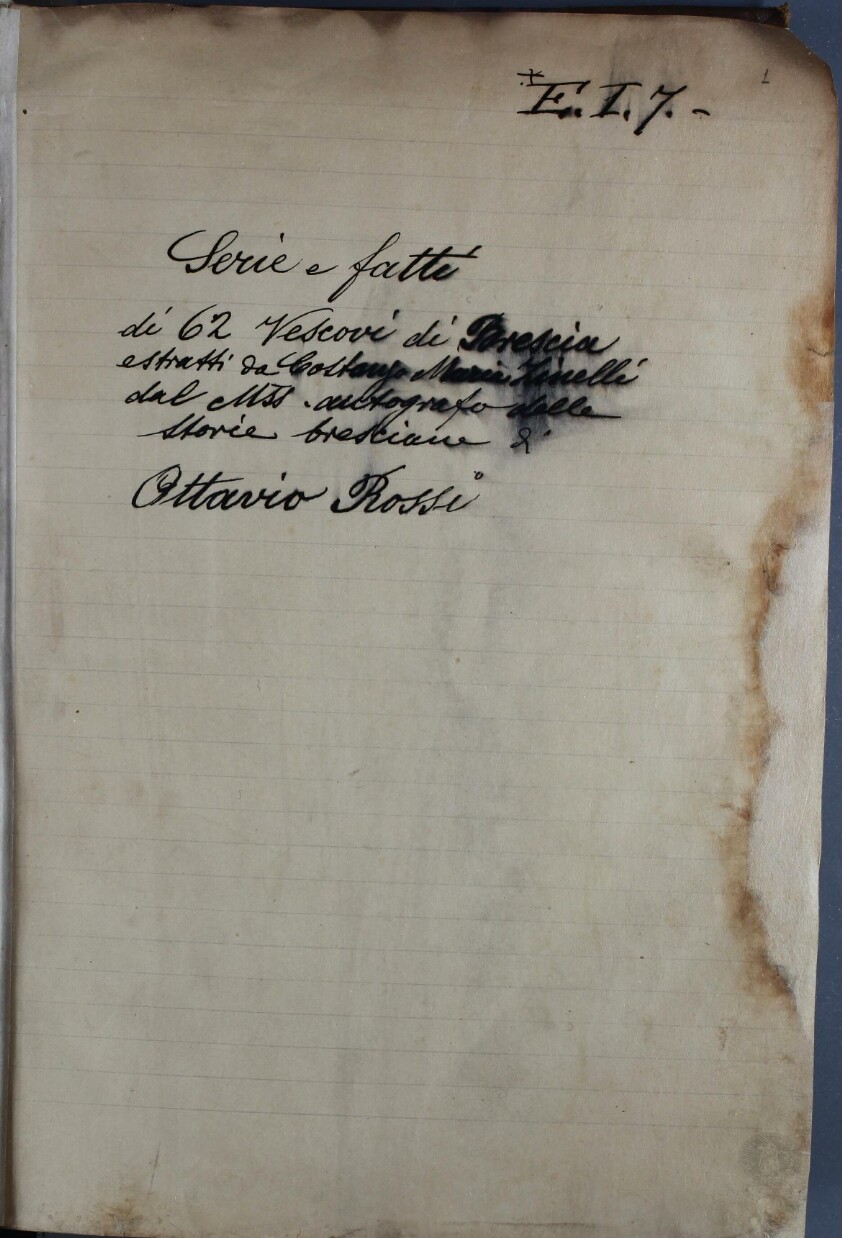 1
*E. I. 7. -
Serie e fatti
di 62 Vescovi di Brescia
estratti da Costanzo Maria Zinelli
dal MSS. autografo delle
storie bresciane di
Ottavio Rossi